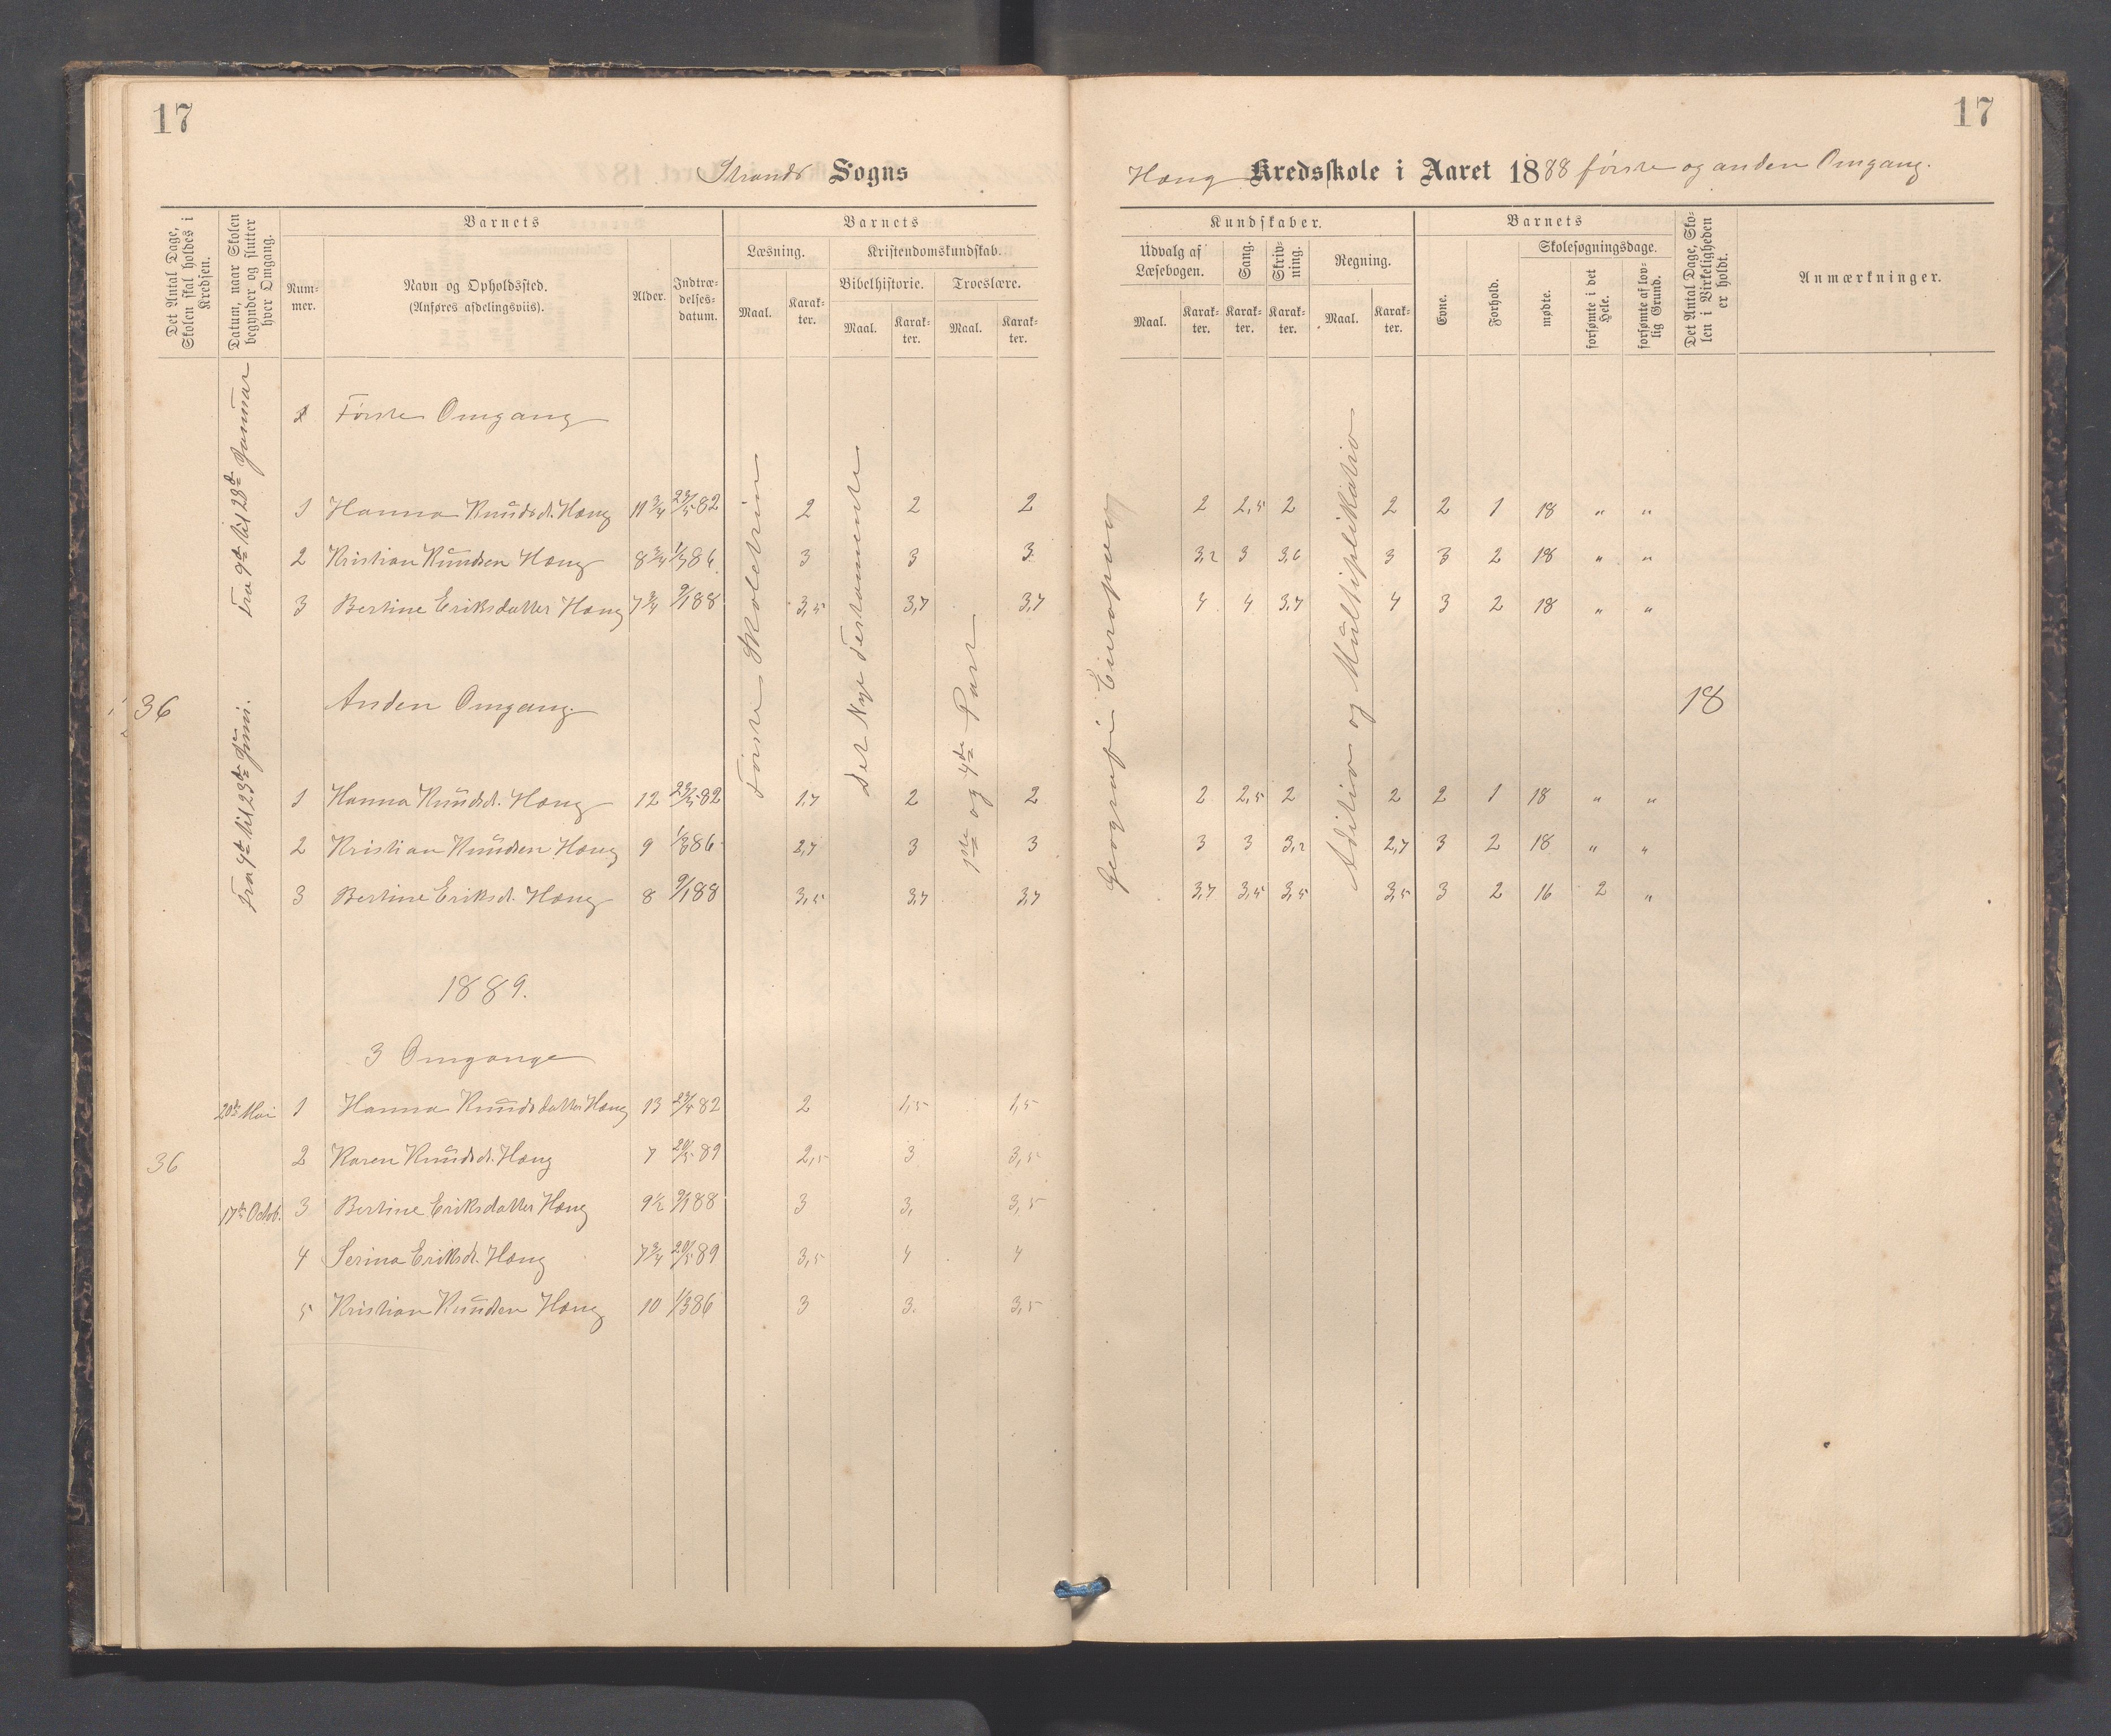 17
17
Strands Sogns
Høng Kredsskole i Aaret 1888 første og anden Omgang.
Det Antal Dage, Skolen skal holdes i Kredsen.
Datum, naar Skolen begynder og slutter hver Omgang.
Barnets
Nummer.
Navn og Opholdssted.
(Anføres afdelingsviis).
Alder.
Indtrædelsesdatum.
Barnets
Læsning.
Maal.
Karakter.
Kristendomskundskab.
Bibelhistorie.
Maal.
Karakter.
Troeslære.
Maal.
Karakter.
Kundskaber.
Udvalg af Læsebogen.
Maal.
Karakter.
Sang.
Karakter.
Skrivning.
Karakter.
Regning.
Maal.
Karakter.
Barnets
Evne.
Forhold.
Skolesøgningsdage.
mødte.
forsømte i det Hele.
forsømte af lovlig Grund.
Det Antal Dage, Skolen i Virkeligheden er holdt.
Anmærkninger.
Fra 9de til 28de Januar
Første Omgang
1 Hanna Knudsd. Høng 11 3/4 23/5 82 2 2 2 2 2,5 2 2 2 1 18 " "
2 Kristian Knudsen Høng 8 3/4 1/3 86 3 3 3 3,2 3 3,6 3 3 2 18 " "
3 Bertine Eriksdatter Høng 7 3/4 9/1 88 3,5 3,7 3,7 4 4 3,7 4 3 2 18 " "
Første Skoletrin
Det Nye Testamente
1ste og 4de Part
Geografi Europa
Adition og Multiplikation
36
Anden Omgang.
18
Fra 4de til 23de Juni.
1 Hanna Knudsd. Høng 12 23/5 82 1,7 2 2 2 2,5 2 2 2 1 18 " "
2 Kristian Knudsen Høng 9 1/3 86 2,7 3 3 3 3 3,2 2,7 3 2 18 " "
3 Bertine Eriksd. Høng 8 9/1 88 3,5 3,7 3,7 3,7 3,5 3,5 3,5 3 2 16 2 "
1889.
3 Omgange
20de Mai 1 Hanna Knudsdatter Høng 13 23/5 82 2 1,5 1,5
36 2 Karen Knudsd. Høng 7 20/5 89 2,5 3 3,5
17de Octob. 3 Bertine Eriksdatter Høng 9 1/2 9/1 88 3 3, 3,5
4 Serina Eriksd. Høng 7 3/4 20/5 89 3,5 4 4
5 Kristian Knudsen Høng 10 1/3 86 3 3. 3,5